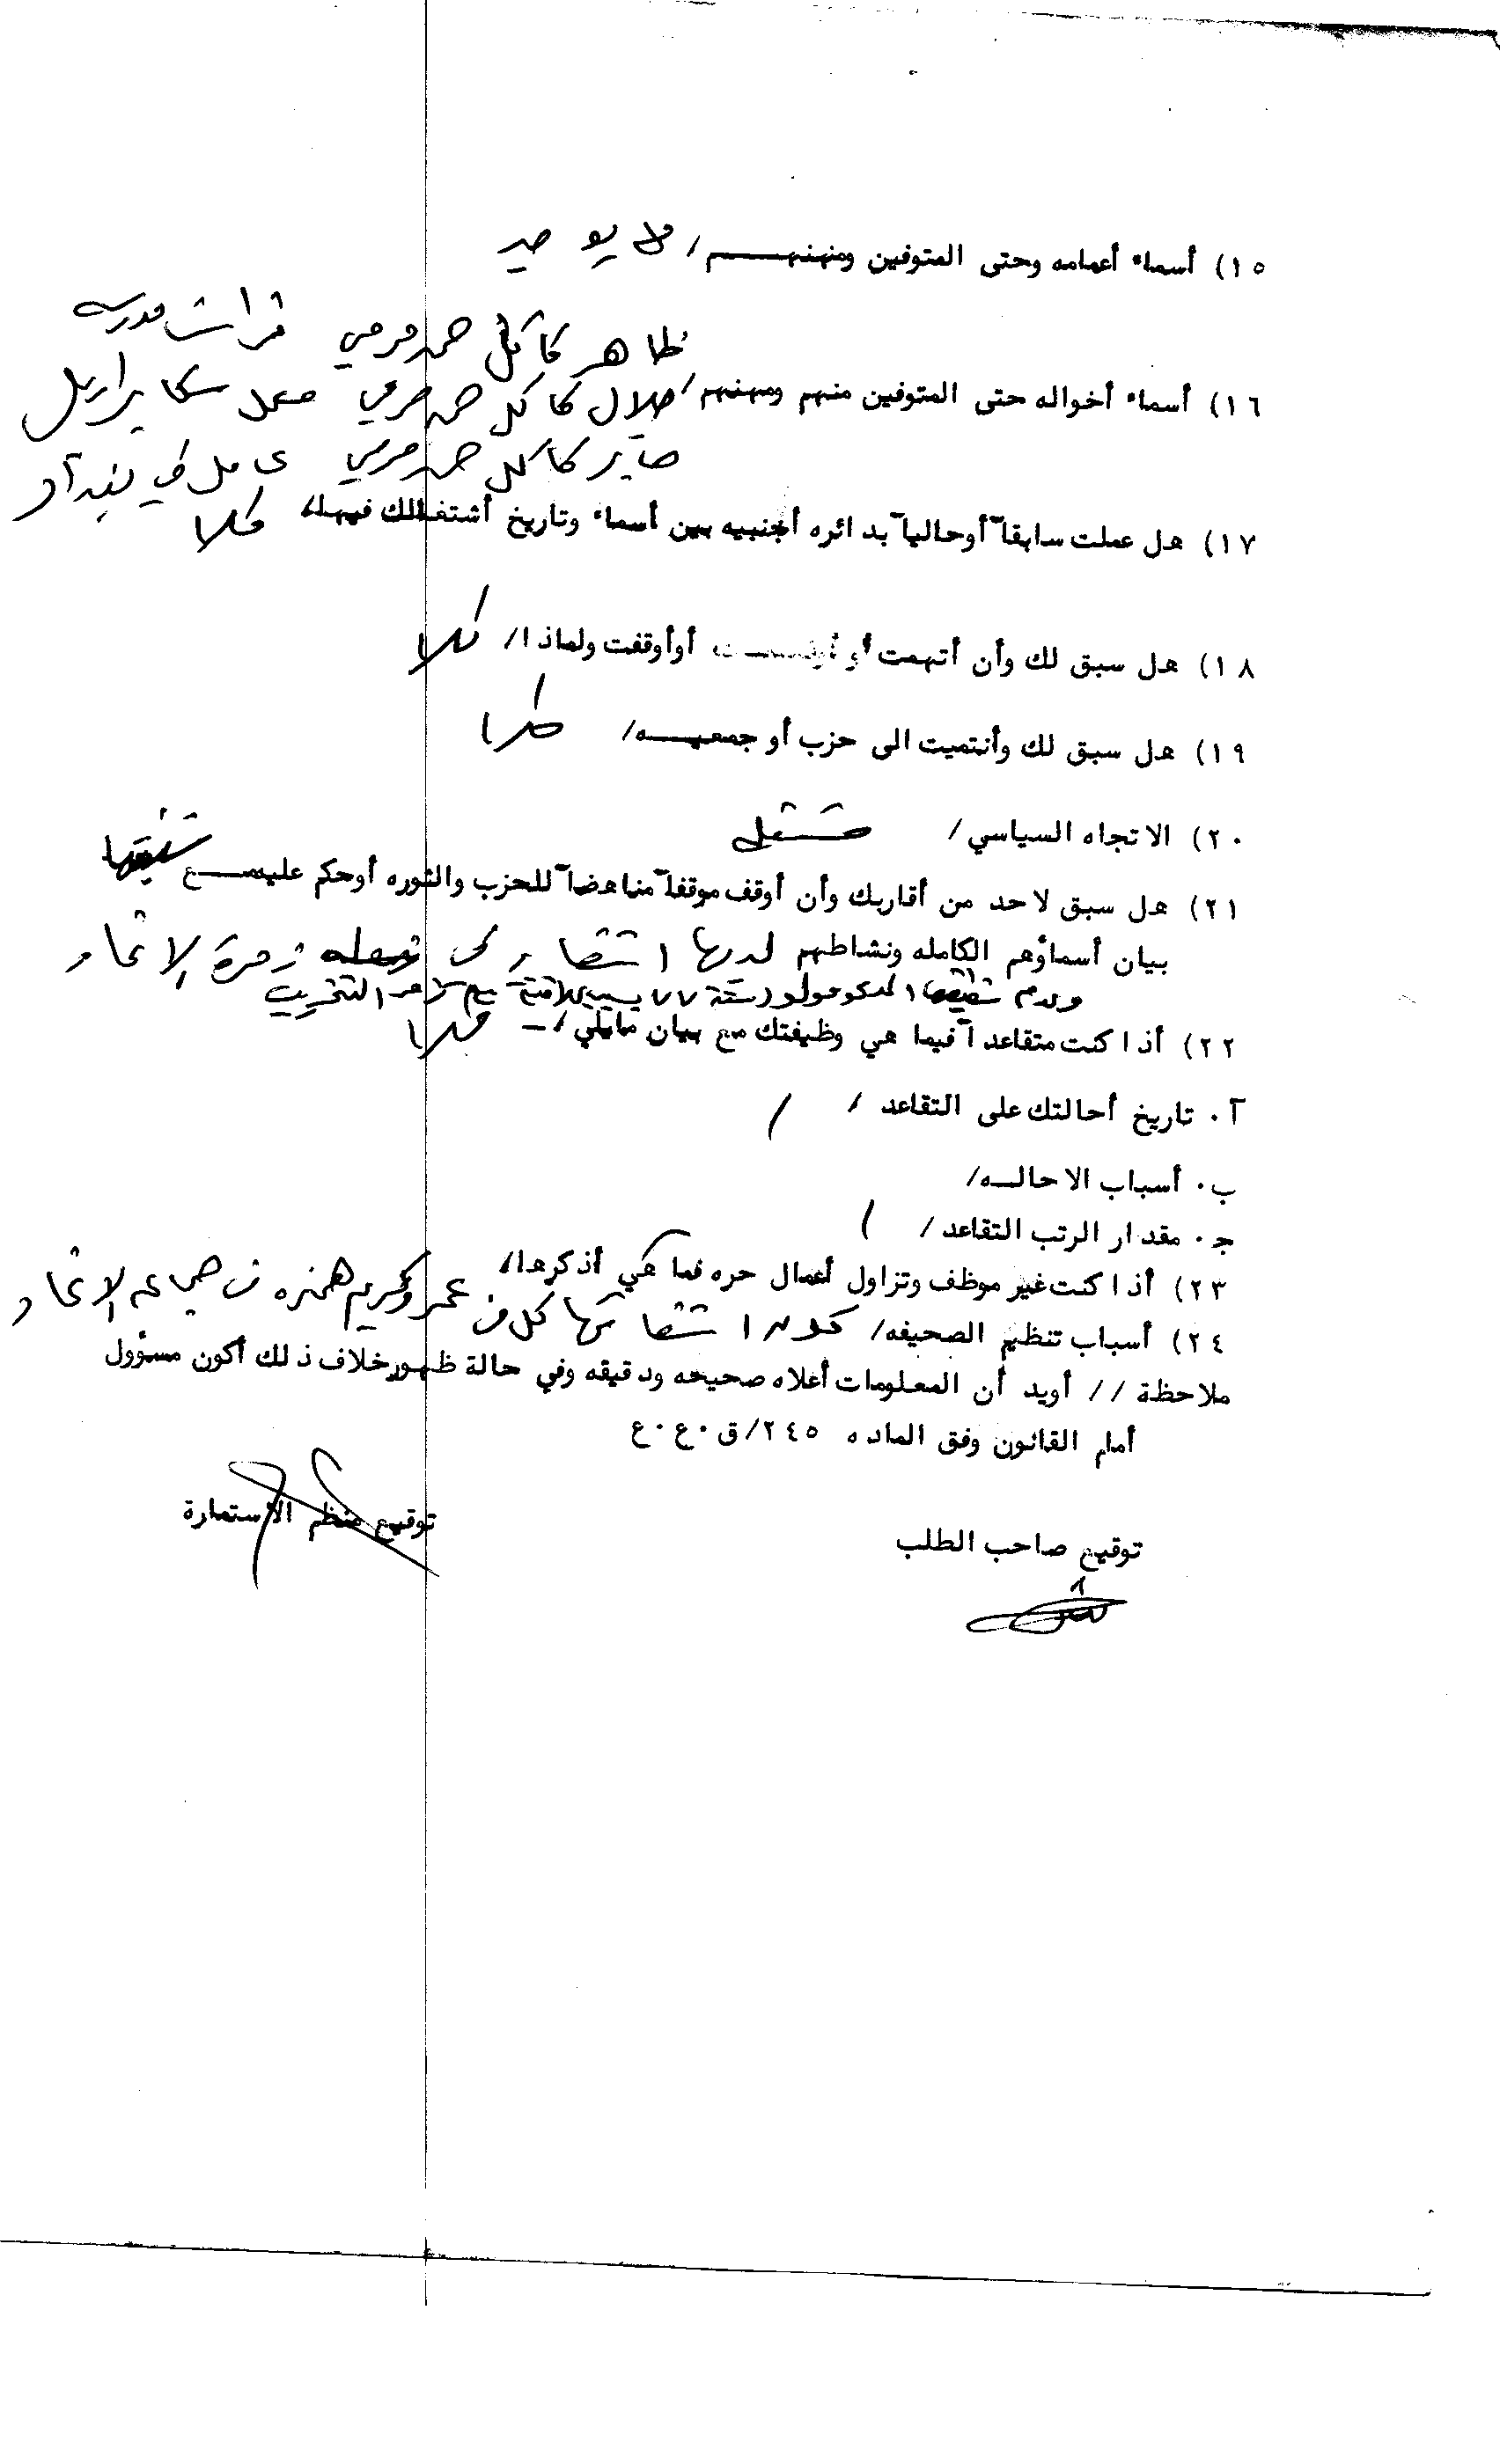 ١٥) أسماء أعمامه وحتى المتوفين ومنهنهم / لا يوجد
ظاهر كاكل حمدمرمي فراش مدرسه
١٦) أسماء أخواله حتى المتوفين منهم ومهنهم / جلال كاكل حمدمرمي معمل سكاير اربيل
صابر كاكل حمدمرمي عامل في بغداد
١٧) هل عملت سابقاً أوحالياً بدائره أجنبيه بين أسماء وتاريخ أشتغالك فيها / كلا
١٨) هل سبق لك وأن أتهمت أو أوأوقفت ولماذا / كلا
١٩) هل سبق لك وأنتميت الى حزب أو جمعيه / كلا
٢٠) الاتجاه السياسي / مستقل
٢١) هل سبق لاحد من أقاربك وأن أوقف موقفاً مناهضاً للحزب والثوره أوحكم عليه مع شقيقها
بيان أسماؤهم الكامله ونشاطهم لديها اشقاء زمرة الاتحاد
شقيقها سنة ٧٧ التخريب
٢٢) أذا كنت متقاعداً فيما هي وظيفتك مع بيان مايلي /- كلا
آ. تاريخ أحالتك على التقاعد / /
ب. أسباب الاحاله /
ج. مقدار الرتب التقاعد / /
٢٣) أذا كنت غير موظف وتزاول أعمال حره فما هي أذكرها /
٢٤) أسباب تنظيم الصحيفه / كون اشقائها كل من عمر وكريم همزه من جماعه الاتحاد
ملاحظة // أويد أن المعلومات أعلاه صحيحه ودقيقه وفي حالة ظهور خلاف ذلك أكون مسؤول
أمام القانون وفق الماده ٢٤٥/ق.ع.ع
توقيع صاحب الطلب توقيع منظم الاستمارة